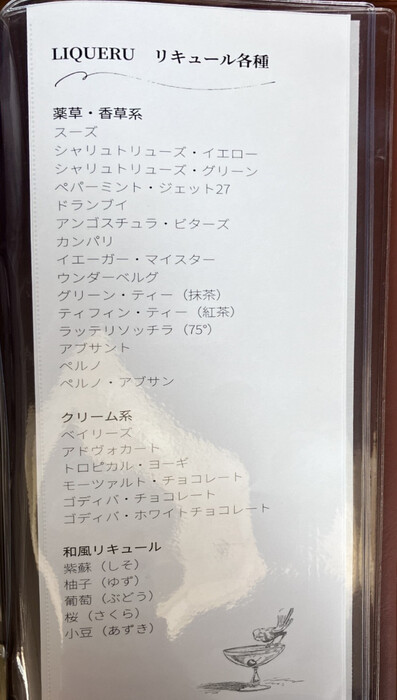 LIQUERU リキュール各種
薬草・香草系
スーズ
シャリュトリューズ・イエロー
シャリュトリューズ・グリーン
ペパーミント・ジェット27
ドランブイ
アンゴスチュラ・ビターズ
カンパリ
イエーガー・マイスター
ウンダーベルグ
グリーン・ティー（抹茶）
ティフィン・ティー（紅茶）
ラッテリソッチラ（75°）
アブサント
ペルノ
ペルノ・アブサン
クリーム系
ベイリーズ
アドヴォカート
トロピカル・ヨーギ
モーツァルト・チョコレート
ゴディバ・チョコレート
ゴディバ・ホワイトチョコレート
和風リキュール
紫蘇（しそ）
柚子（ゆず）
葡萄（ぶどう）
桜（さくら）
小豆（あずき）